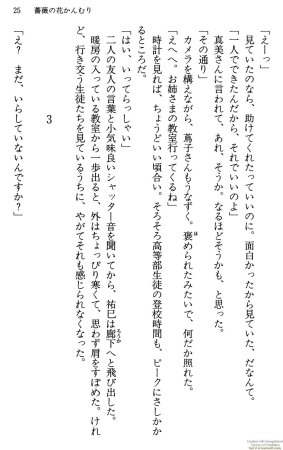 25　薔薇の花かんむり
「えーっ」
見ていたのなら、助けてくれたっていいのに。面白かったから見ていた、だなんて。
「一人でできたんだから、それでいいのよ」
真美さんに言われて、あれ、そうか。なるほどそうかも、と思った。
「その通り」
カメラを構えながら、蔦子さんもうなずく。褒められたみたいで、何だか照れた。
「えへへ。お姉さまの教室行ってくるね」
時計を見れば、ちょうどいい頃合い。そろそろ高等部生徒の登校時間も、ピークにさしかか
るところだ。
「はい、いってらっしゃい」
二人の友人の言葉と小気味良いシャッター音を聞いてから、祐巳は廊下へと飛び出した。
暖房の入っている教室から一歩出ると、外はちょっぴり寒くて、思わず肩をすぼめた。けれ
ど、行き交う生徒たちを見ているうちに、やがてそれも感じられなくなった。
3
「え？　まだ、いらしていないんですか？」